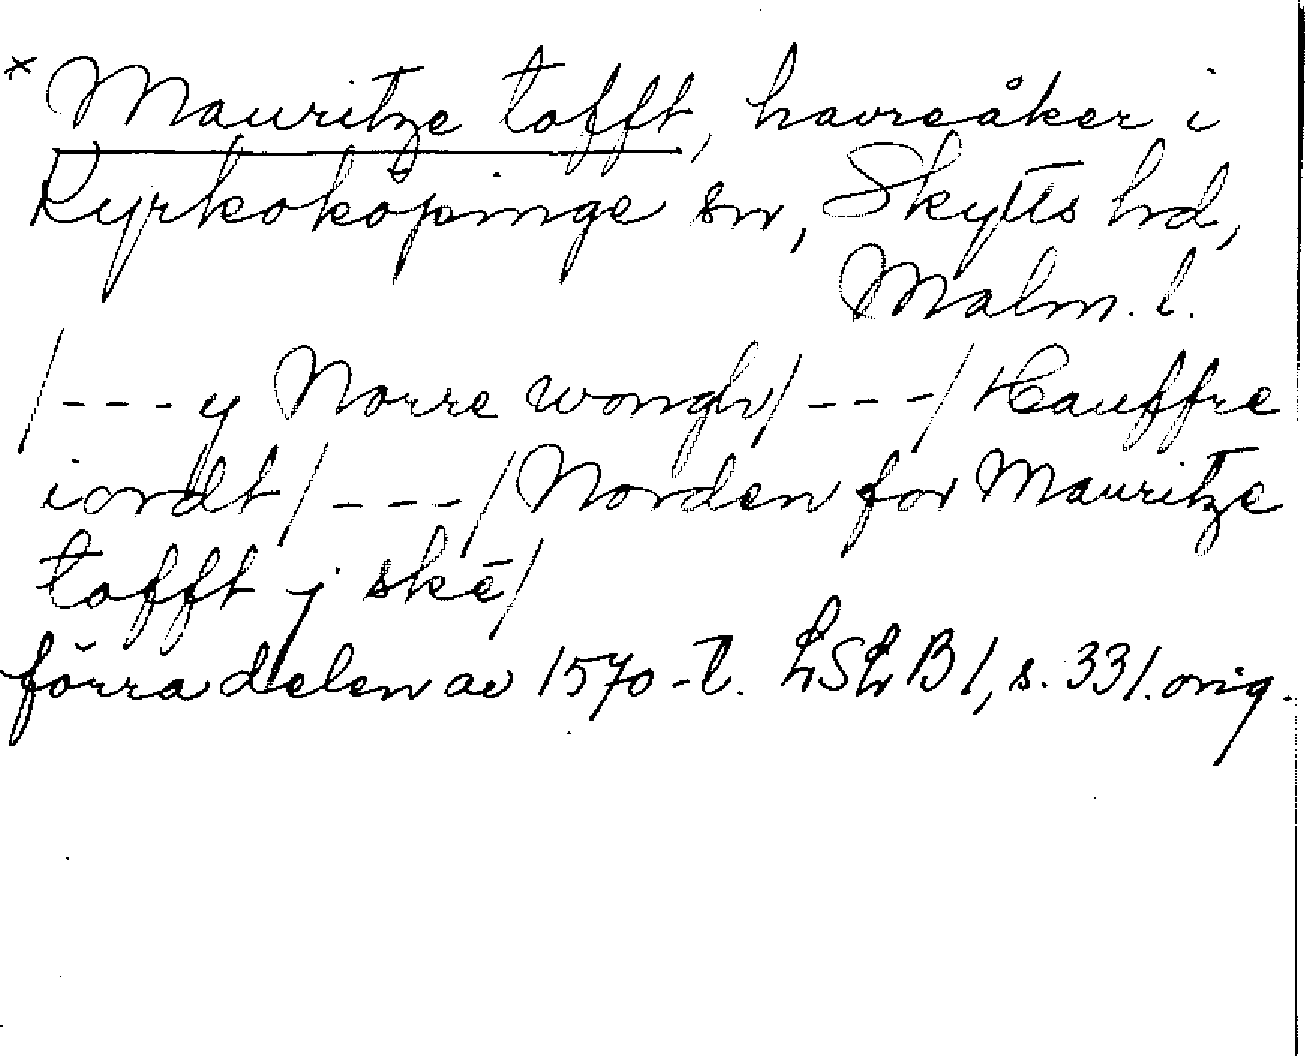 * Mauritze tofft, havreåker i
Kyrkoköpinge sn, Skytts hd,
Malm. l.
/---y Norre wongh/---/Hauffre
iordt/---/Norden for Mauritze
tofft j skē/
förra delen av 1570-t. LSLB1, s. 331. orig.